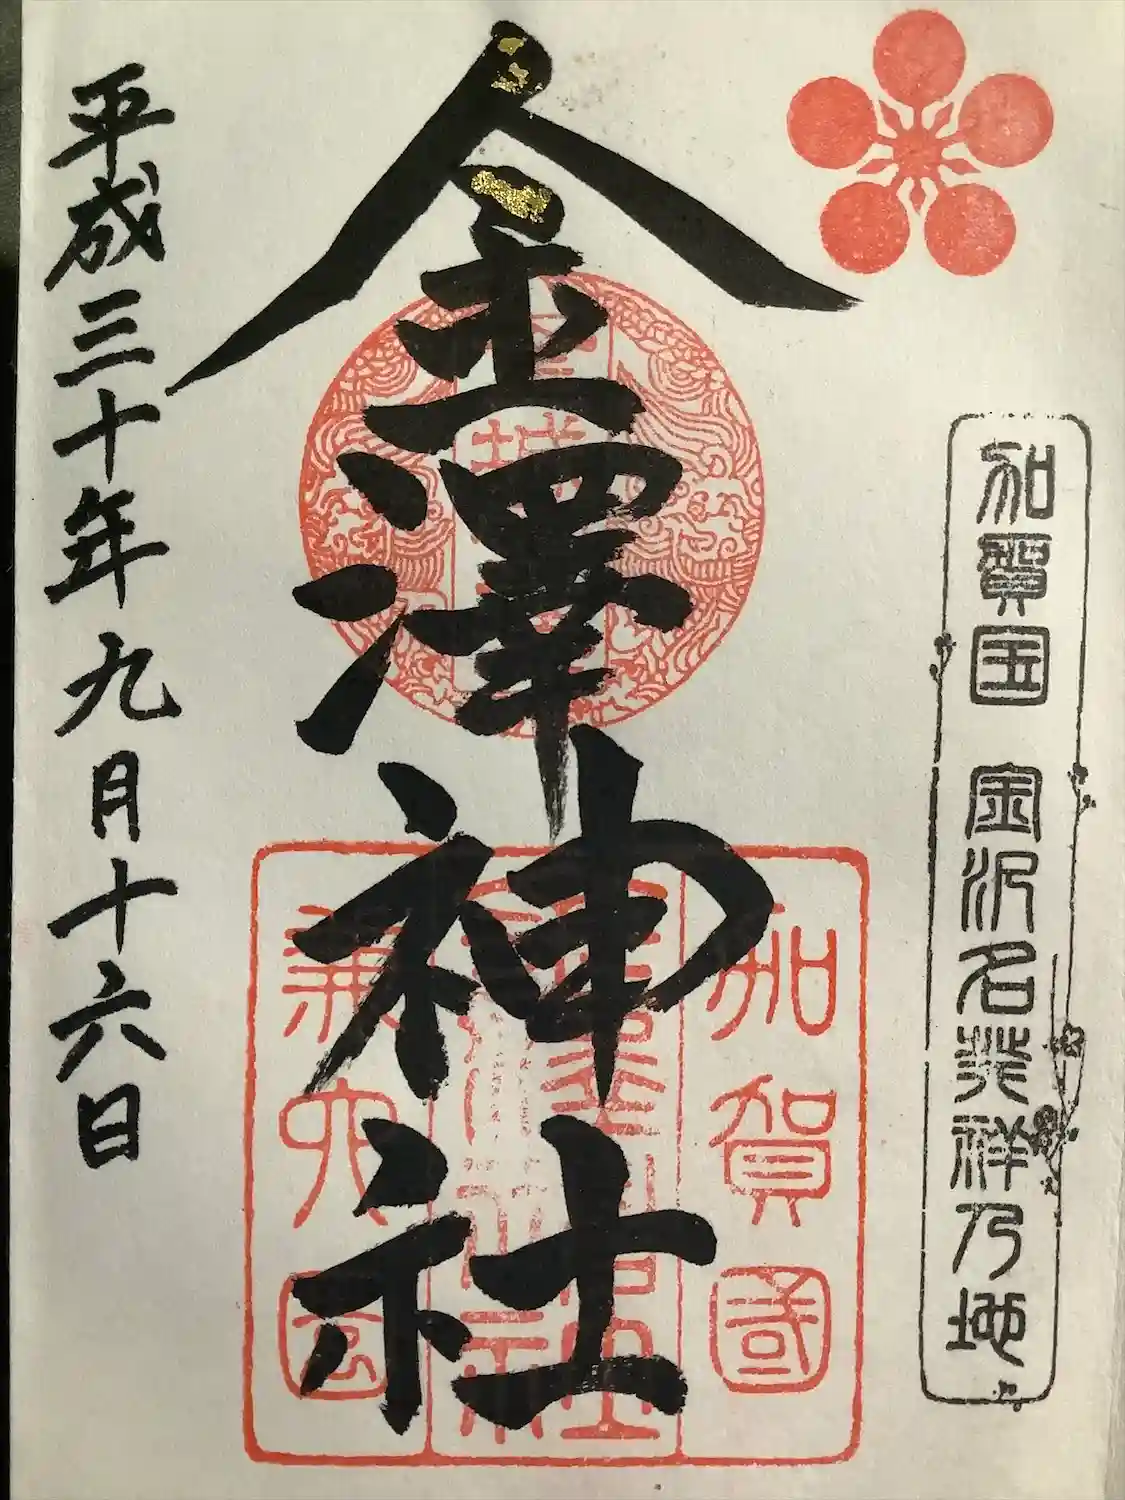 加賀国 金沢名発祥乃地
金澤神社
加賀國
兼六園
平成三十年九月十六日